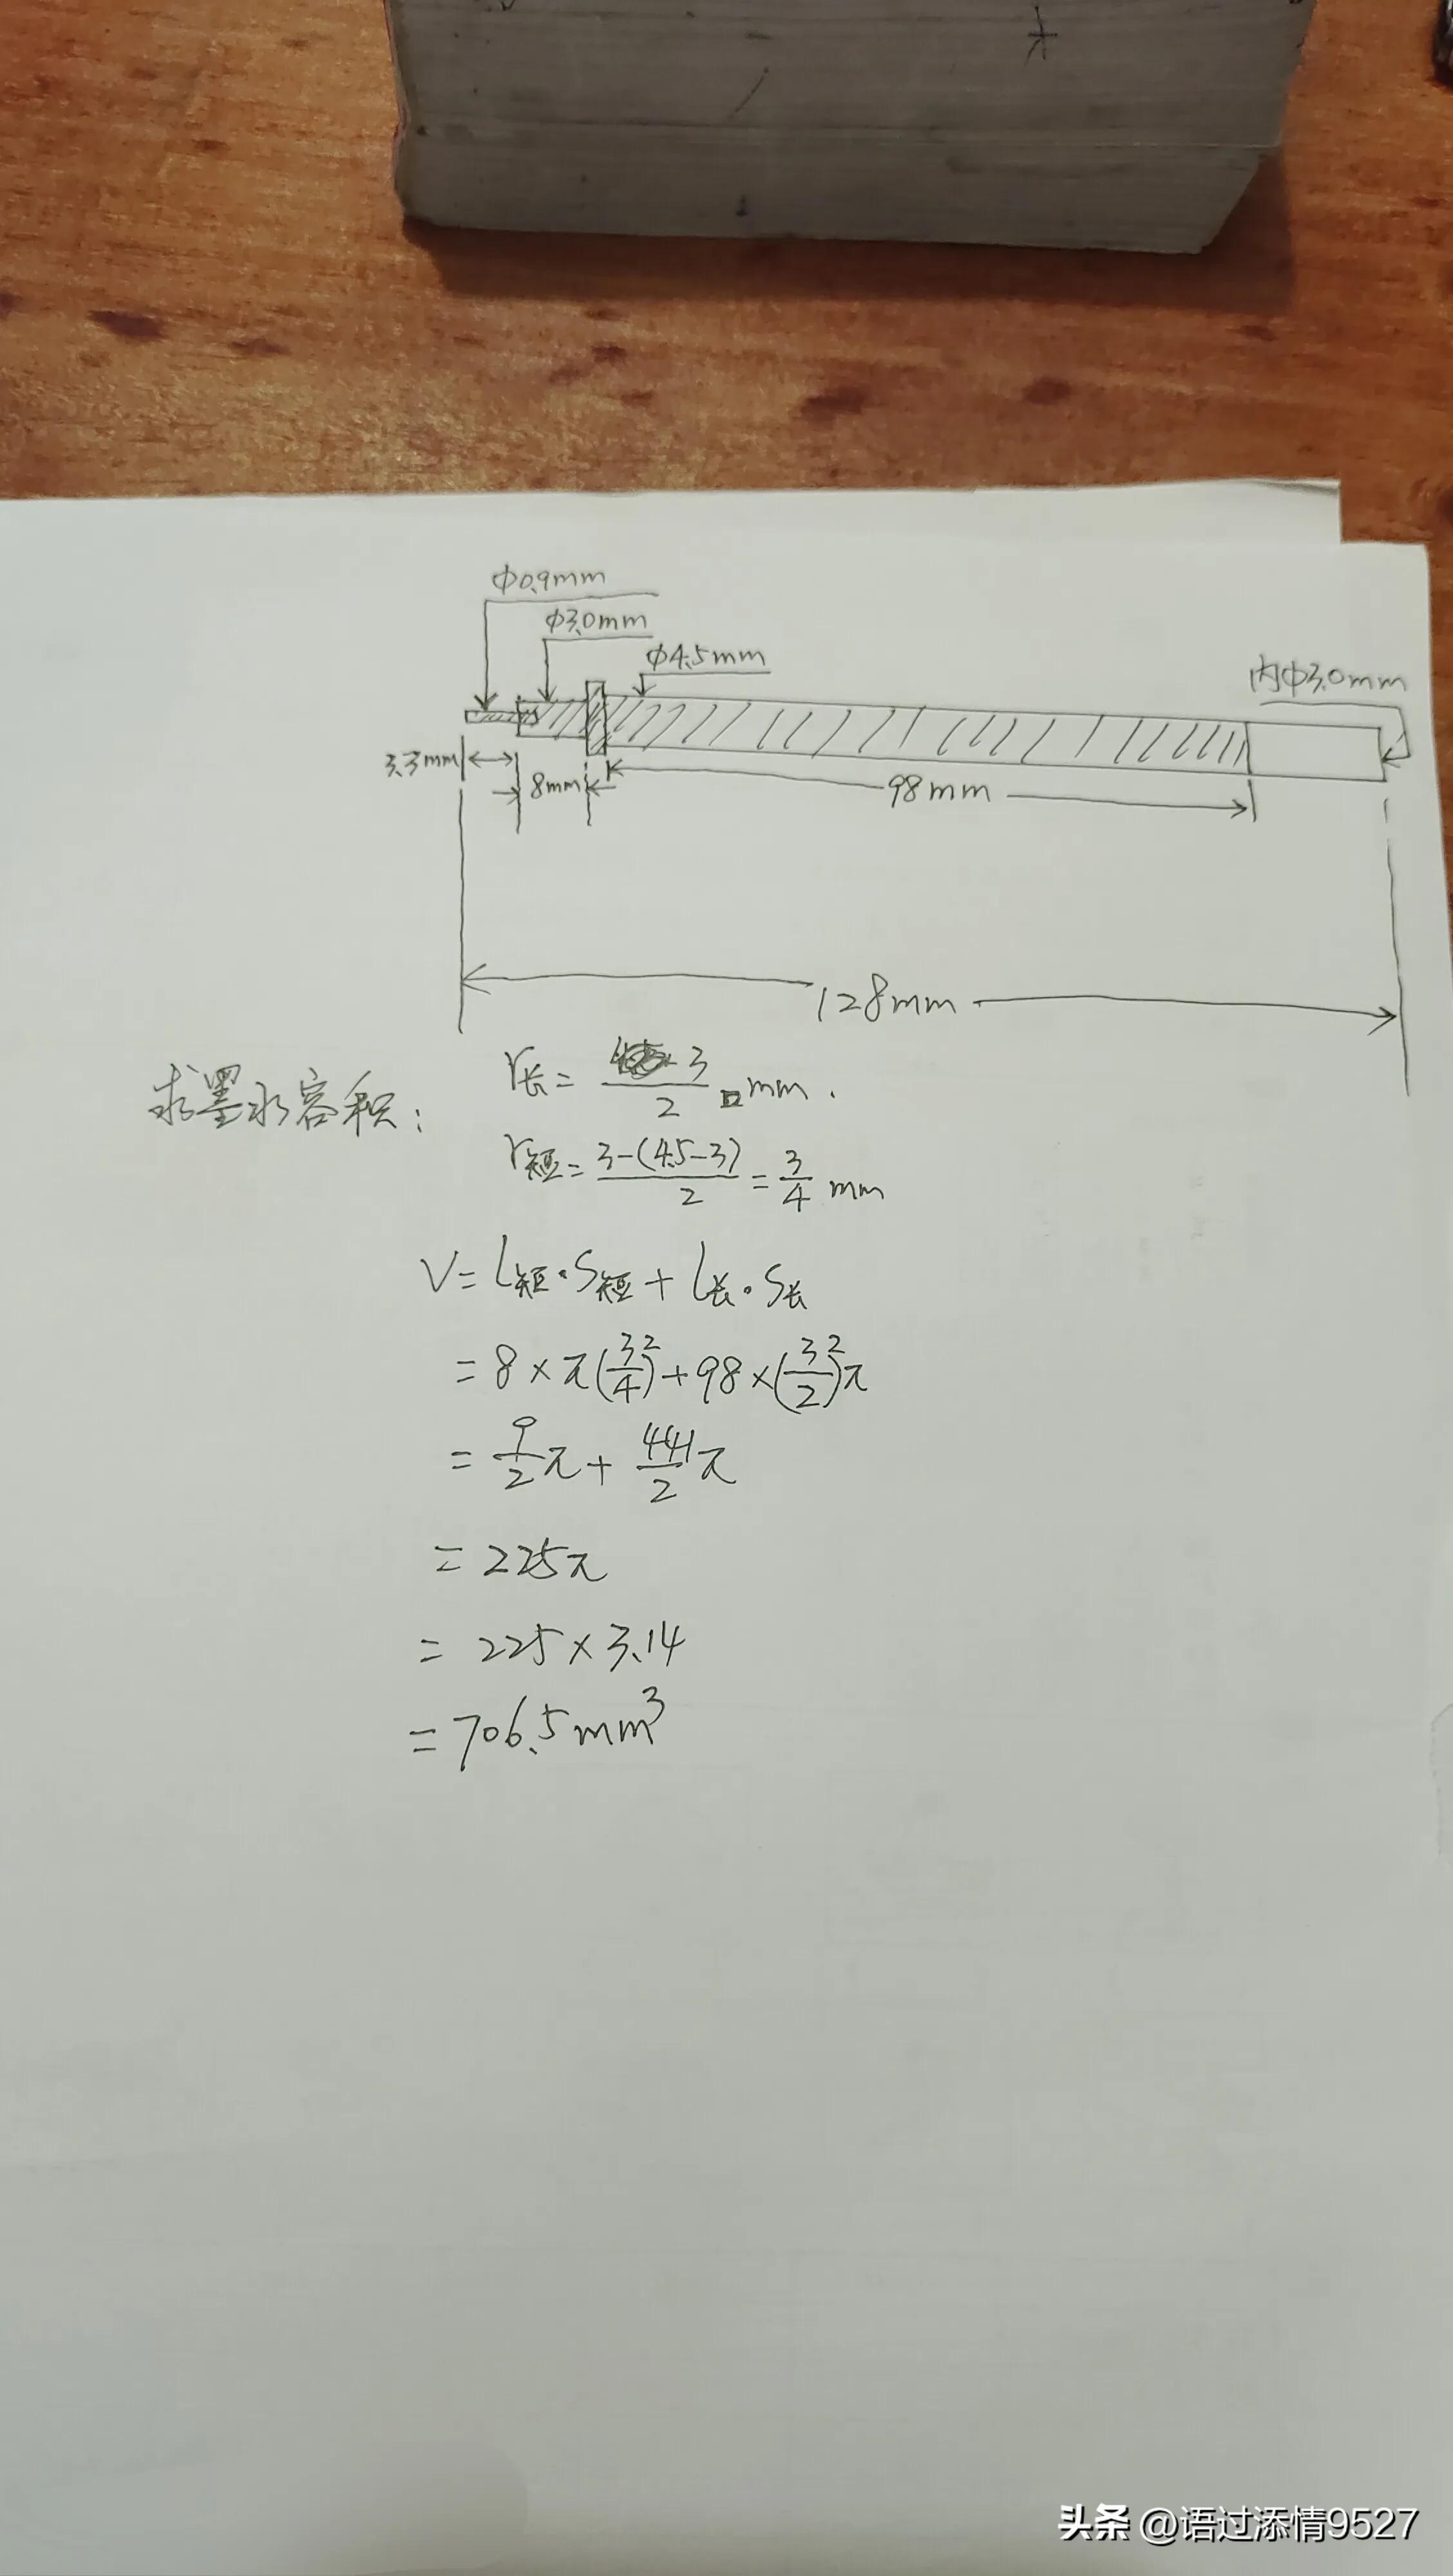 Φ0.9mm
Φ3.0mm
Φ4.5mm
内Φ3.0mm
3.3mm
8mm
98mm
128mm
求墨水容积：
r长=3/2 mm.
r短=3-(4.5-3)/2=3/4 mm
V=L短·S短+L长·S长
=8×π(3/4)²+98×(3/2)²π
=9/2π+441/2π
=225π
=225×3.14
=706.5mm³
头条 @语过添情9527